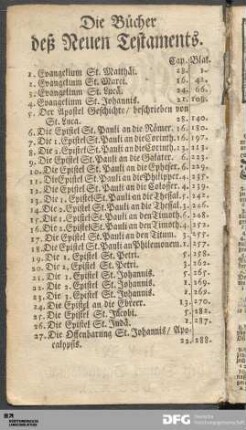 Die Bücher
deß Neuen Testaments.
Cap. Blat.
1. Evangelium St. Matthäi. 28. 1.
2. Evangelium St. Marci. 16. 42.
3. Evangelium St. Lucä. 24. 66.
4. Evangelium St. Johannis. 21. 108.
5. Der Apostel Geschichte/ beschrieben von
St. Luca. 28. 140.
6. Die Epistel St. Pauli an die Römer. 16. 180.
7. Die 1. Epistel St. Pauli an die Corinth. 16. 197.
8. Die 2. Epistel St. Pauli an die Corinth. 13. 213.
9. Die Epistel St. Pauli an die Galater. 6. 223.
10. Die Epistel St. Pauli an die Epheser. 6. 229.
11. Die Epistel St. Pauli an die Philipper. 4. 235.
12. Die Epistel St. Pauli an die Colosser. 4. 239.
13. Die 1. Epistel St. Pauli an die Thessal. 5. 243.
14. Die 2. Epistel St. Pauli an die Thessal. 3. 246.
15. Die 1. Epistel St. Pauli an den Timoth. 6. 248.
16. Die 2. Epistel St. Pauli an den Timoth. 4. 252.
17. Die Epistel St. Pauli an den Titum. 3. 255.
18. Die Epistel St. Pauli an Philemonem. 1. 257.
19. Die 1. Epistel St. Petri. 5. 258.
20. Die 2. Epistel St. Petri. 3. 262.
21. Die 1. Epistel St. Johannis. 5. 265.
22. Die 2. Epistel St. Johannis. 1. 269.
23. Die 3. Epistel St. Johannis. 1. 269.
24. Die Epistel an die Ebreer. 13. 270.
25. Die Epistel St. Jacobi. 5. 282.
26. Die Epistel St. Judä. 1. 287.
27. Die Offenbarung St. Johannis/ Apo-
calypsis. 22. 288.
DFG